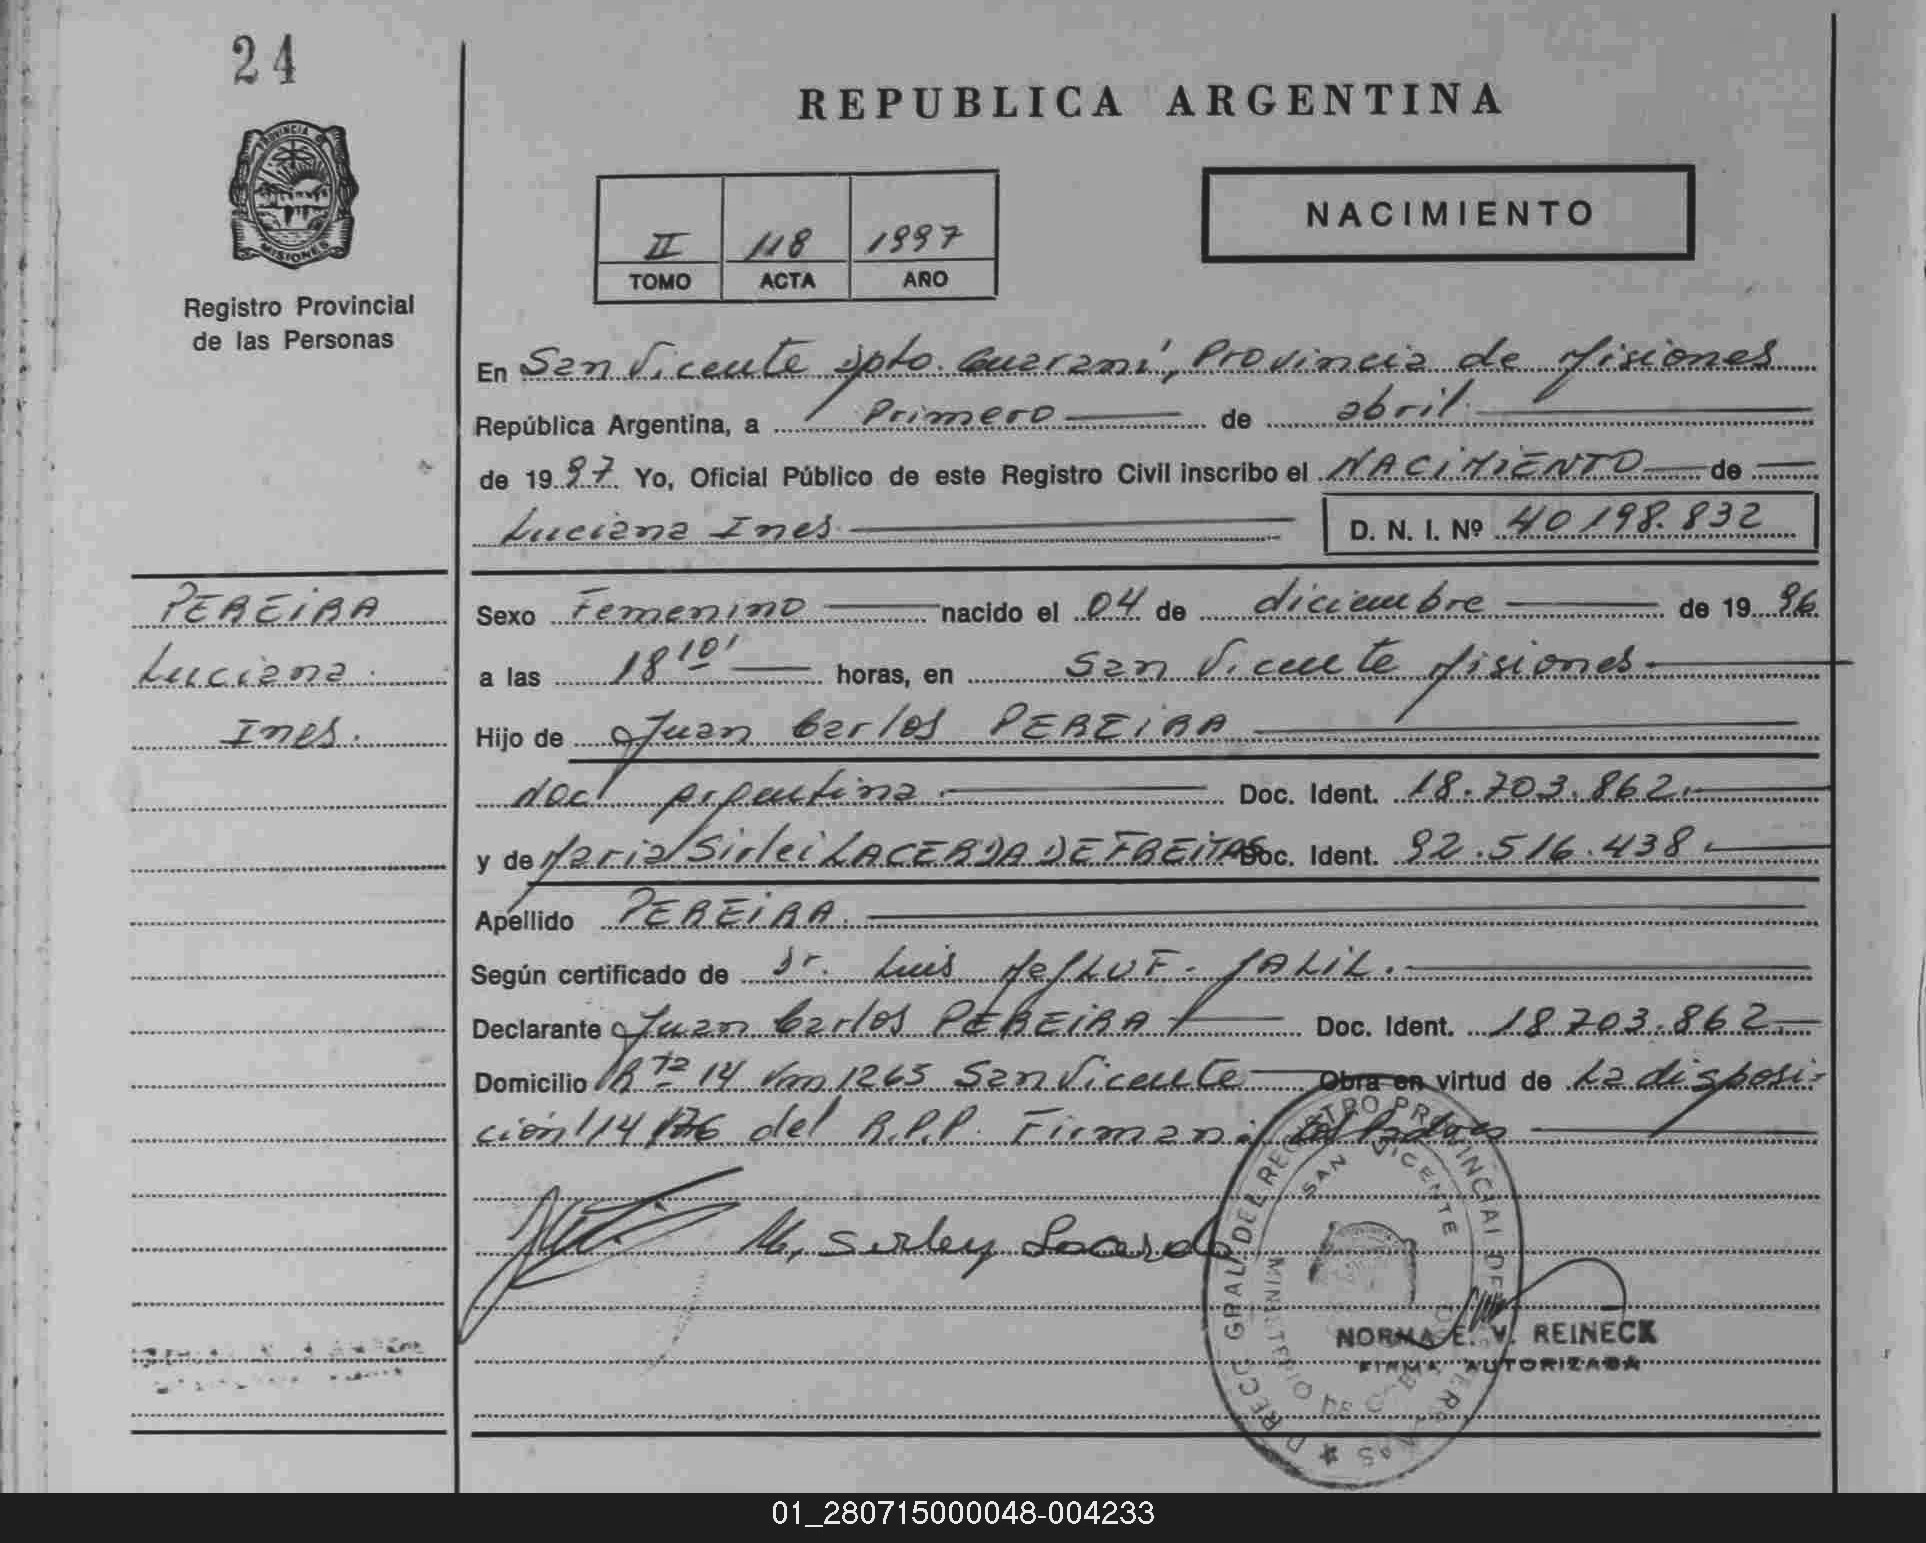 24
REPUBLICA ARGENTINA
PROVINCIA D
MISIONES
Registro Provincial
de las Personas
II 118 1997
TOMO ACTA AÑO
NACIMIENTO
En San Vicente Dpto. Guarani, Provincia de Misiones
República Argentina, a Primero de abril.
de 1997. Yo, Oficial Público de este Registro Civil inscribo el NACIMIENTO de
Luciana Ines D. N. I. Nº 40198.832
PEREIRA
Luciana
Ines.
Sexo Femenino nacido el 04 de diciembre de 1996
a las 18 10' horas, en San Vicente Misiones
Hijo de Juan Carlos PEREIRA
Nac argentina Doc. Ident. 18.703.862.
y de Maria Sirlei LACERDA DE FREITAS Doc. Ident. 92.516.438.
Apellido PEREIRA.
Según certificado de Dr. Luis JALIL.
Declarante Juan Carlos PEREIRA Doc. Ident. 18703.862.
Domicilio Rta 14 km 1265 San Vicente Obra en virtud de La disposi-
ción 114/76 del R.P.P. Firman: los Padres
M. Sirley Lacerda
DIRECC GRAL DEL REGISTRO PROVINCIAL DE LAS PERSONAS
SAN VICENTE
MINISTERIO DE
NORMA E. V. REINECK
FIRMA AUTORIZADA
01_280715000048-004233